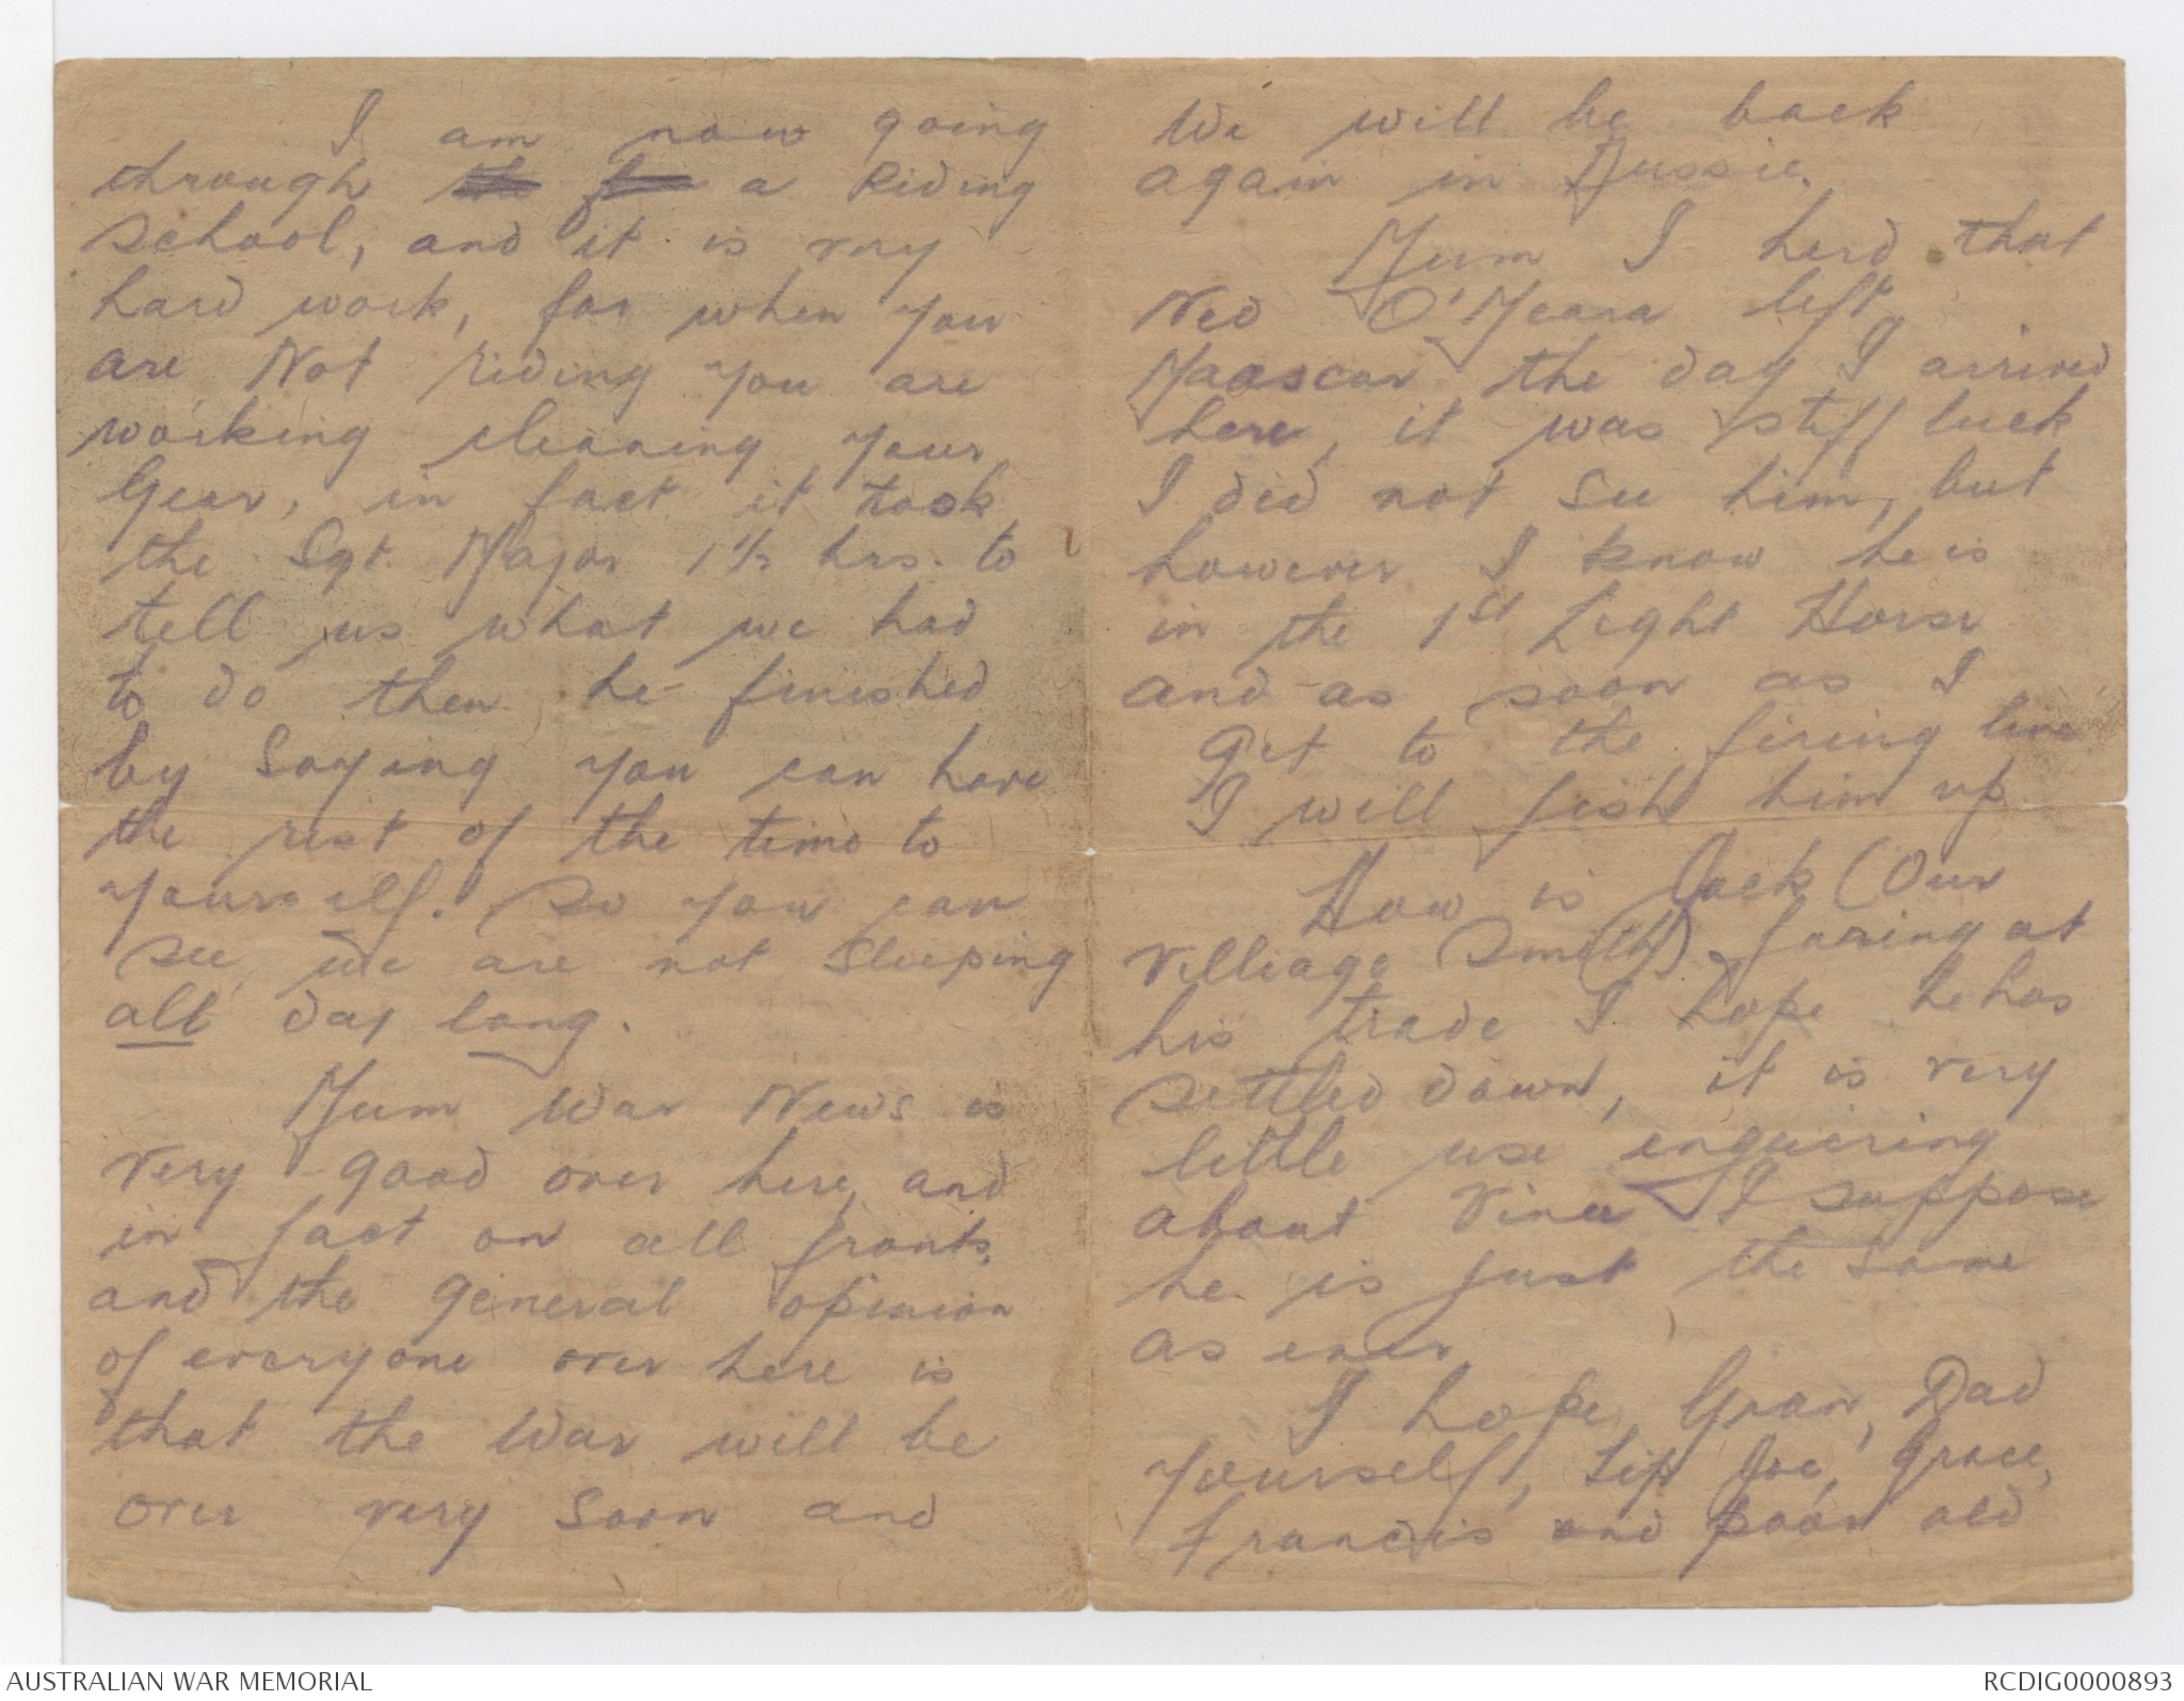 I am now going
through a Riding
School, and it is very
hard work, for when you
are Not riding you are
working cleaning your
Gear, in fact it took
the Sgt. Major 1½ hrs. to
tell us what we had
to do then he finished
by Saying you can have
the rest of the time to
yourself. So you can
see, We are not Sleeping
all day long.
Mum War News is
very good over here, and
in fact on all fronts,
and the general opinion
of everyone over here is
that the War will be
over very Soon and
We will be back
again in Aussie.
Mum I herd that
Ned O'Meara left
Maascar the day I arrived
here, it was stiff luck
I did not See him, but
however I know he is
in the 1st Light Horse
and as soon as I
Get to the firing line
I will fish him up
How is Jack (Our
Villiage Smith) faring at
his trade I hope he has
settled down, it is very
little use enquiring
about Vince I suppose
he is just the same
as ever
I hope, Gran, Dad
yourself, Joe, Grace,
Francis and poor old
AUSTRALIAN WAR MEMORIAL
RCDIG0000893